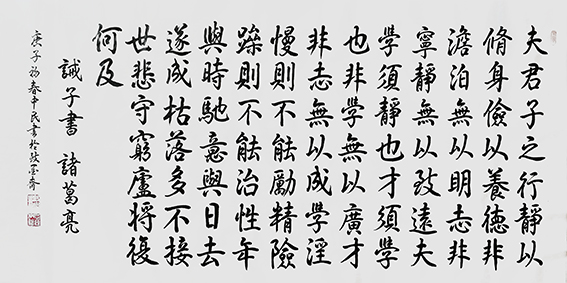 夫君子之行靜以
脩身儉以養德非
澹泊無以明志非
寧靜無以致遠夫
學須靜也才須學
也非學無以廣才
非志無以成學淫
慢則不能勵精險
躁則不能治性年
與時馳意與日去
遂成枯落多不接
世悲守窮廬將復
何及
誡子書 諸葛亮
庚子初春中民書於墨齋